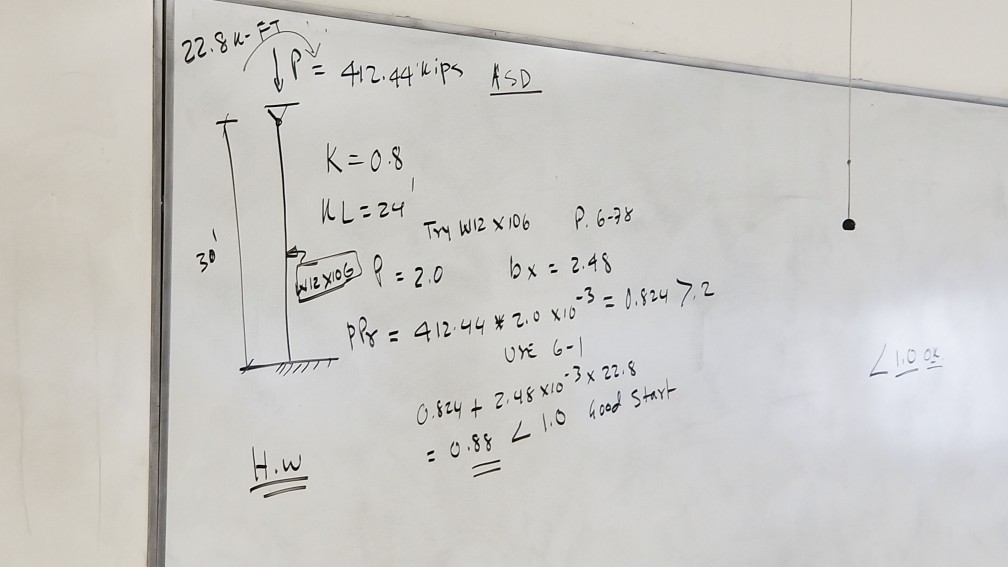 22.8 K-FT
P = 412.44 kips ASD
K = 0.8
KL = 24'
Try W12 x 106 P. 6-78
30'
W12x106
P = 2.0 bx = 2.48
pPr = 412.44 * 2.0 x10^-3 = 0.824 > .2
USE 6-1
0.824 + 2.48 x10^-3 x 22.8
= 0.88 < 1.0 Good Start
H.W
< 1.0 OK